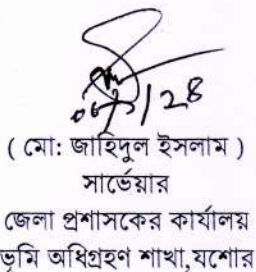 ( মো: জাহিদুল ইসলাম )
সার্ভেয়ার
জেলা প্রশাসকের কার্যালয়
ভূমি অধিগ্রহণ শাখা,যশোর